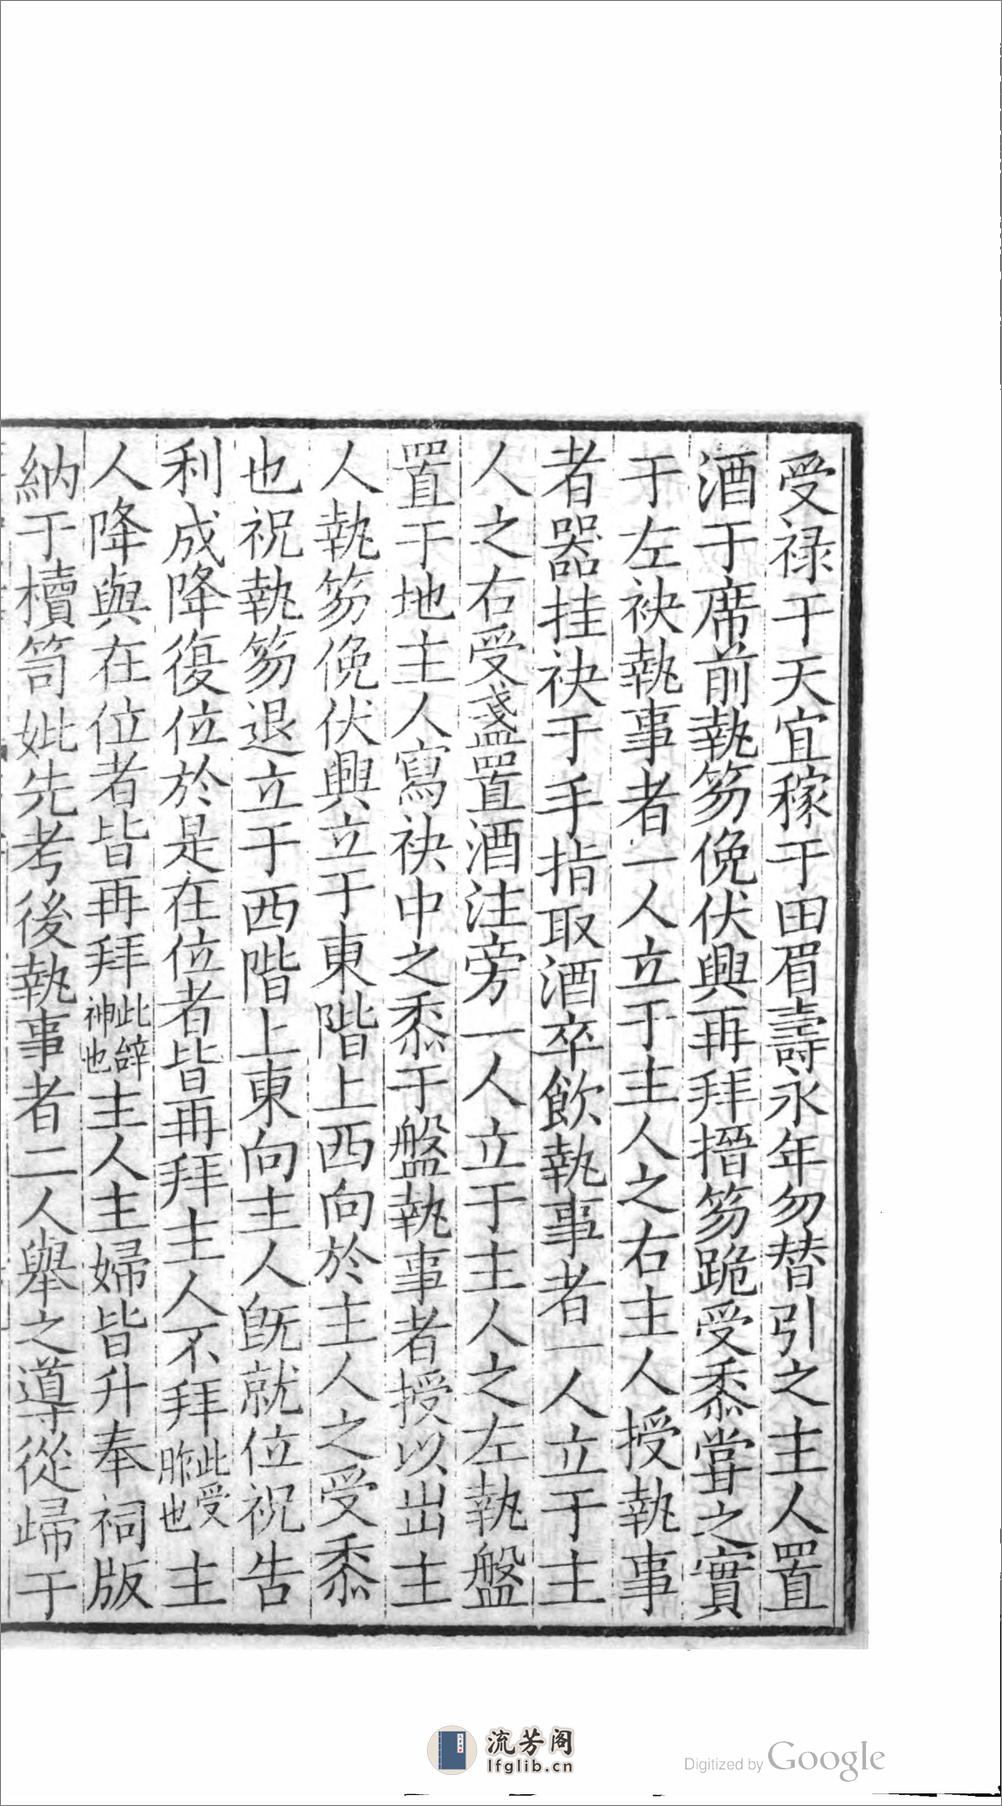 受祿于天宜稼于田眉壽永年勿替引之主人置
酒于席前執笏俛伏興再拜搢笏跪受黍嘗之實
于左袂執事者一人立于主人之右主人授執事
者器挂袂于手指取酒卒飲執事者一人立于主
人之右受盞置酒注旁一人立于主人之左執盤
置于地主人寫袂中之黍于盤執事者授以出主
人執笏俛伏興立于東階上西向於主人之受黍
也祝執笏退立于西階上東向主人旣就位祝告
利成降復位於是在位者皆再拜主人不拜此受胙也主
人降與在位者皆再拜此辭神也主人主婦皆升奉祠版
納于櫝笥妣先考後執事者二人舉之導從歸于
流芳阁
lfglib.cn
Digitized by Google